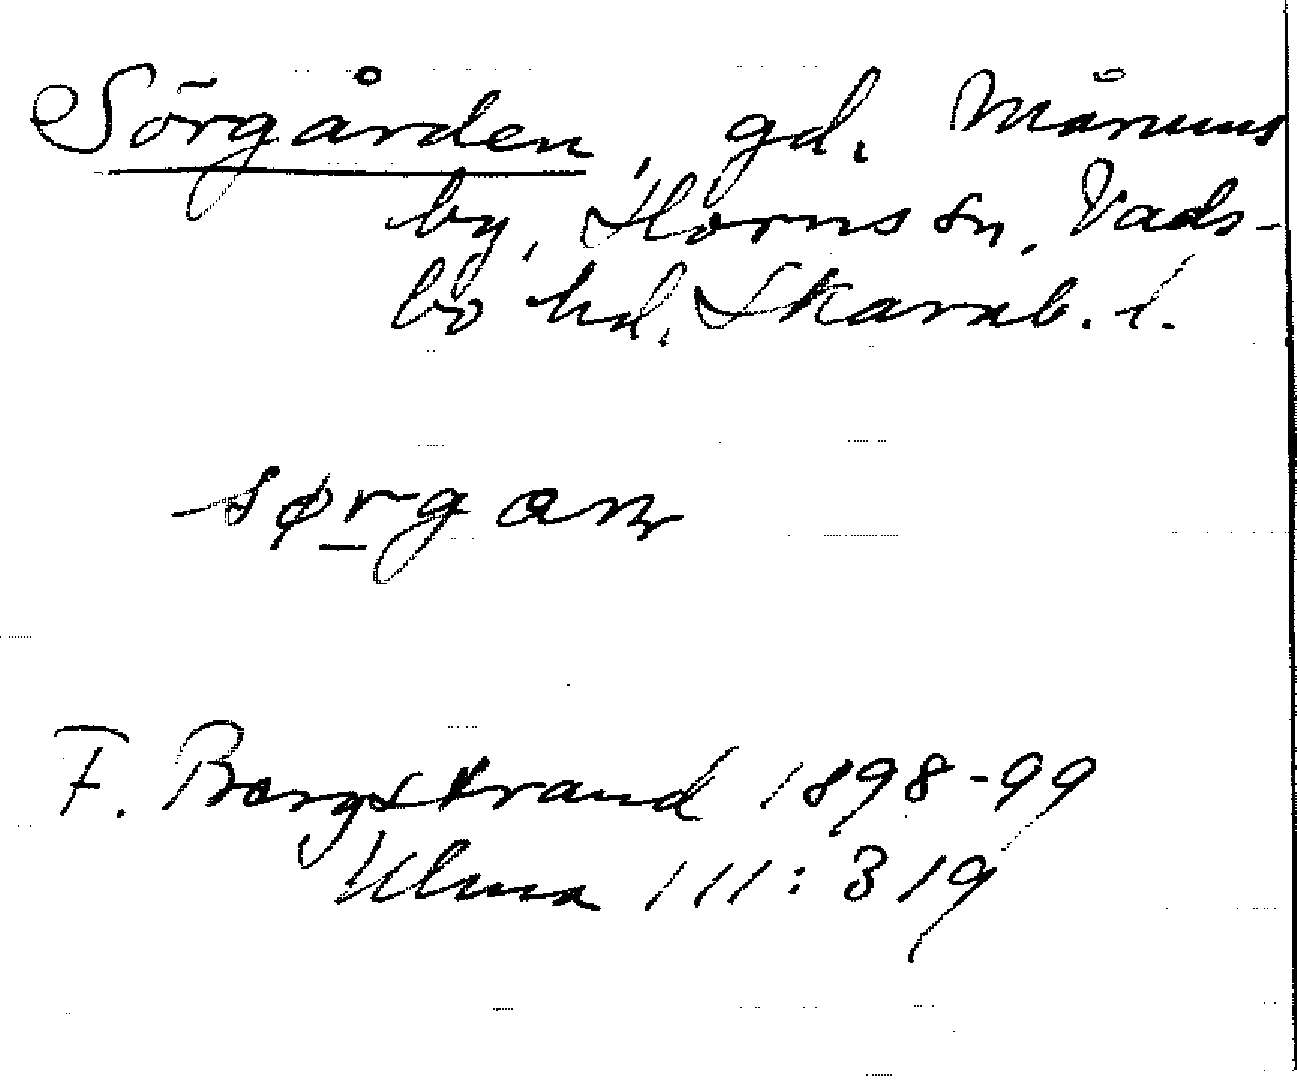 Sörgården, gd. Månuns
by, Horns sn, Vads-
bo hd. Skarab. l.
sørgan
F. Bergstrand 1898-99
Ulma 111:319